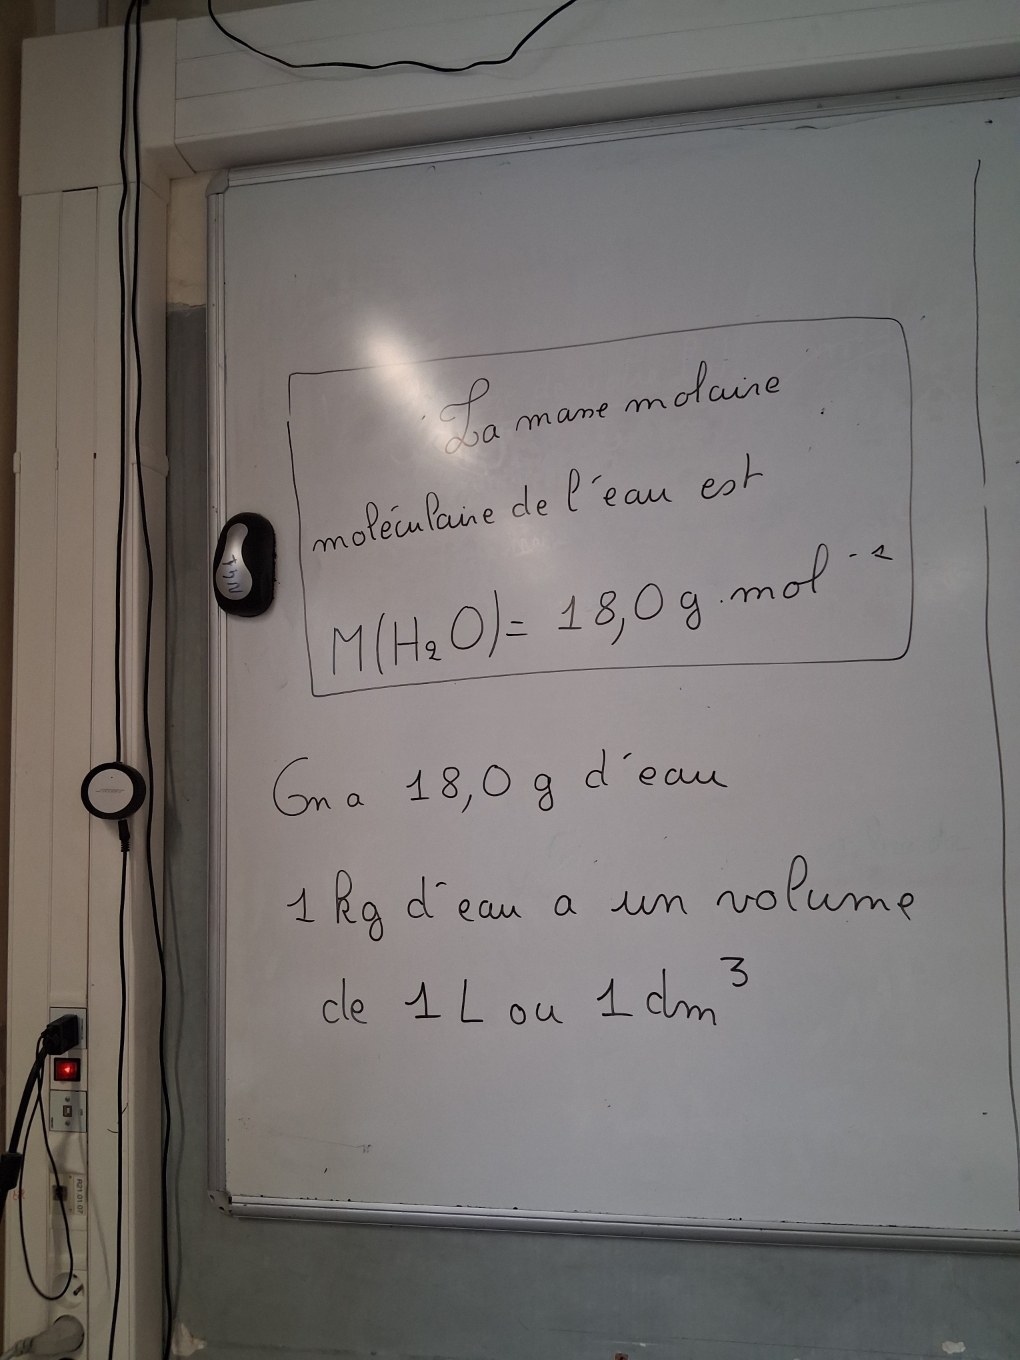 La masse molaire
moléculaire de l'eau est
M(H₂O) = 18,0 g.mol⁻¹
On a 18,0 g d'eau
1 kg d'eau a un volume
de 1 L ou 1 dm³
R21.01.07